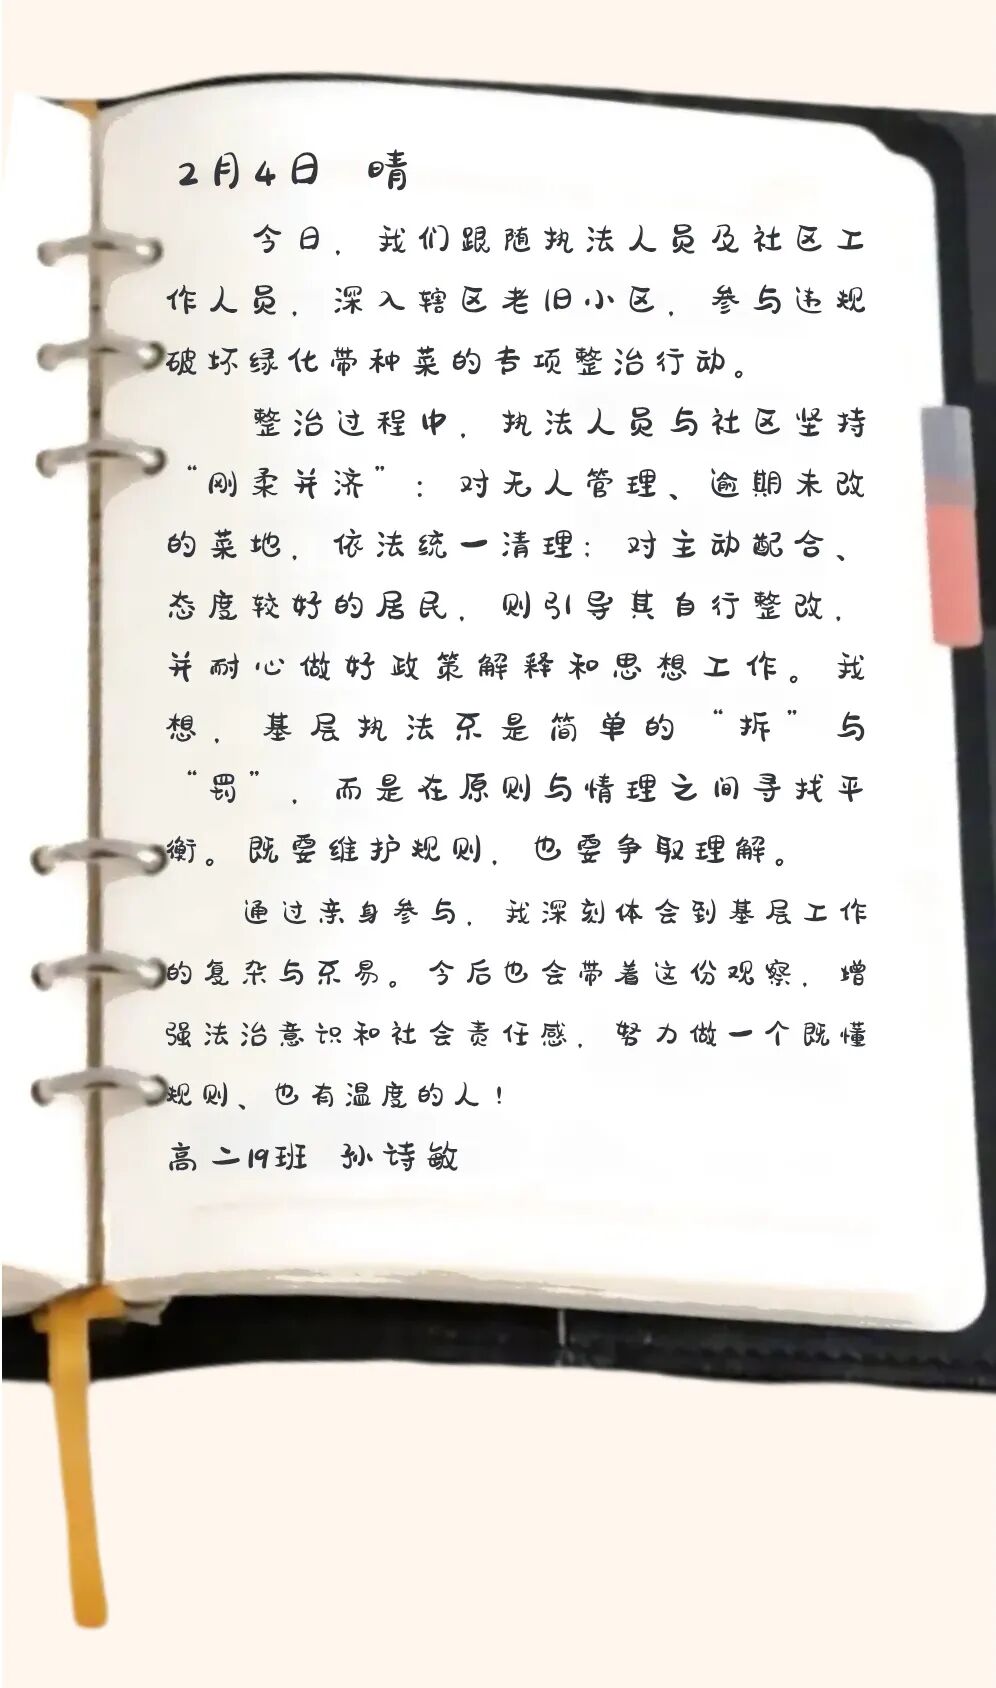 2月4日 晴
今日，我们跟随执法人员及社区工
作人员，深入辖区老旧小区，参与违规
破坏绿化带种菜的专项整治行动。
整治过程中，执法人员与社区坚持
“刚柔并济”：对无人管理、逾期未改
的菜地，依法统一清理；对主动配合、
态度较好的居民，则引导其自行整改，
并耐心做好政策解释和思想工作。我
想，基层执法不是简单的“拆”与
“罚”，而是在原则与情理之间寻找平
衡。既要维护规则，也要争取理解。
通过亲身参与，我深刻体会到基层工作
的复杂与不易。今后也会带着这份观察，增
强法治意识和社会责任感，努力做一个既懂
规则、也有温度的人！
高二19班 孙诗敏